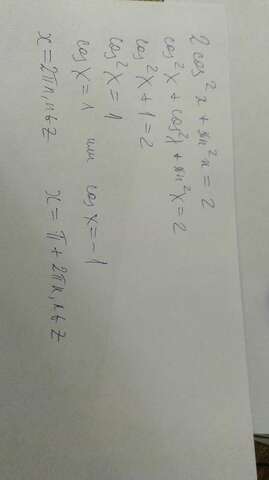 2 cos²x + sin²x = 2
cos²x + cos²x + sin²x = 2
cos²x + 1 = 2
cos²x = 1
cos x = 1 или cos x = -1
x = 2πn, n∈Z x = π + 2πn, n∈Z